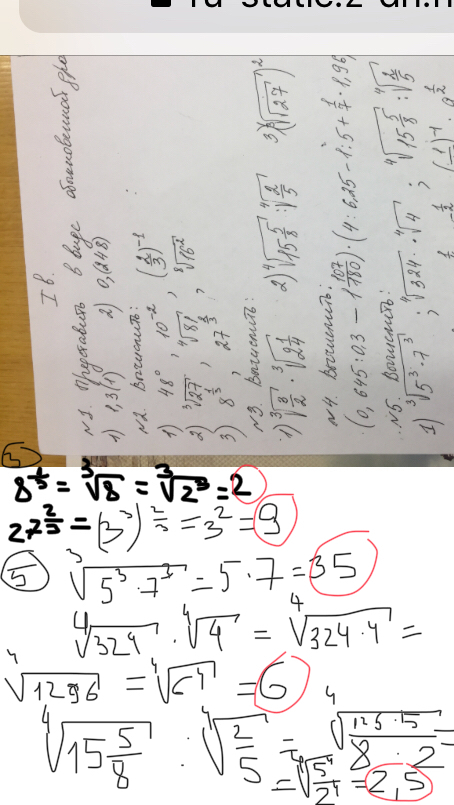 I в.
№1. Представить в виде обыкновенной
1) 1,3(1) 2) 0,(248)
№2. Вычислить:
1) 48⁰, 10⁻², (2/3)⁻¹
2) ∛27, ∜81, ⁸√16²
3) 8^(1/3), 27^(2/3),
№3. Вычислить:
1) ∛(3/2) · ∛(9/24) 2) ∜(15 5/8) : ∜(2/5)
№4. Вычислить:
(0,645:0,3 − 1 107/180) · (4:6,25 − 1:5 + 1/7 · 1,96
№5. Вычислить:
1) ∛(5³·7³), ∜324 · ∜4; ∜(15 5/8) : ∜(2/5)
3
8^(1/3) = ∛8 = ∛(2³) = 2
27^(2/3) = (3³)^(2/3) = 3² = 9
5
∛(5³·7³) = 5·7 = 35
∜324 · ∜4 = ∜(324·4) =
∜1296 = ∜(6⁴) = 6
∜(15 5/8) : ∜(2/5) = ∜((125·5)/(8·2)) =
= ∜(5⁴/2⁴) = 2,5